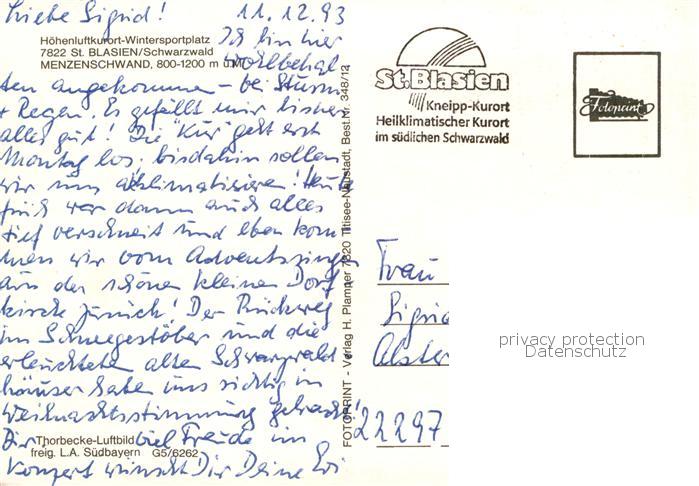 Liebe Sigrid! 11.12.93
Höhenluftkurort-Wintersportplatz
7822 St. BLASIEN/Schwarzwald
MENZENSCHWAND, 800-1200 m ü.M.
Ich bin hier
wohlbehal
ten angekommen – bei Sturm
+ Regen. Es gefällt mir bisher
alles gut! Die "Kur" geht erst
Montag los, bis dahin sollen
wir uns aklimatisieren! Heute
früh war dann auch alles
tief verschneit und eben kom
men wir vom Adventssingen
aus der schönen kleinen Dorf
kirche zurück! Der Rückweg
im Schneegestöber und die
erleuchteten alten Schwarzwald
häuser haben uns richtig in
Weihnachtsstimmung gebracht!
Dir viel Freude im
Konzert wünscht Dir Deine
Thorbecke-Luftbild
freig. L.A. Südbayern G5/6262
FOTOPRINT - Verlag H. Plamper 7820 Titisee-Neustadt, Best.Nr. 348/12
St.Blasien
Kneipp-Kurort
Heilklimatischer Kurort
im südlichen Schwarzwald
Fotoprint
Frau
Sigrid
Alster
22297
privacy protection
Datenschutz